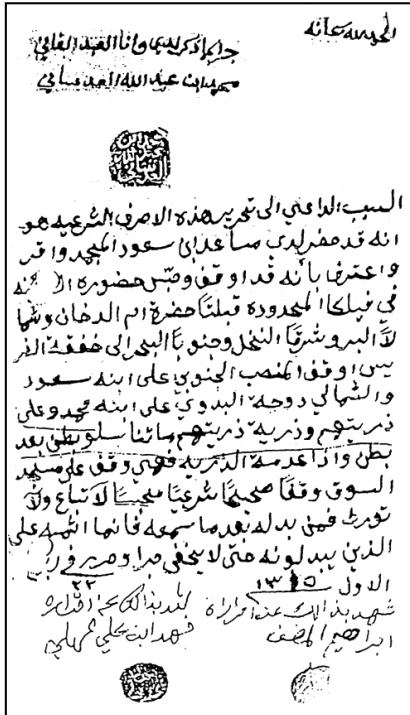 الحمد لله سبحانه
جرا ما ذكر لدي وانا العبد الفاني
محمد بن عبدالله العدساني
السبب الداعي الى تحرير هذه الاحرف الشرعيه هو
انه قد حضر لدي مساعد ابن سعود واقر
واعترف بأنه قد اوقف وحبس حضوره
في فيلكا المحدوده قبلتا حضرة ام الدخان وشما
لاً البر وشرقاً النخل وجنوباً البحر الى
اوقف الجنوبي على ابنه سعود
والشمالي دوحة البدوي على ابنه محمد وعلى
ذريتهم وذرية ذريتهم ما تناسلو بطن بعد
بطن واذا عدمة الذريه فهي وقف على مسجد
السوق وقفاً صحيحاً شرعياً لا تباع ولا
تورث فمن بدله بعد ما سمعه فانما اثمه على
الذين يبدلونه حتى لا يخفى جرا وحرر في ربيع
الاول ٢٢ ١٣١٥
شهد بذالك عن اقراره
ابراهيم المضف
شهد بذالك عن اقراره
فهد ابن علي